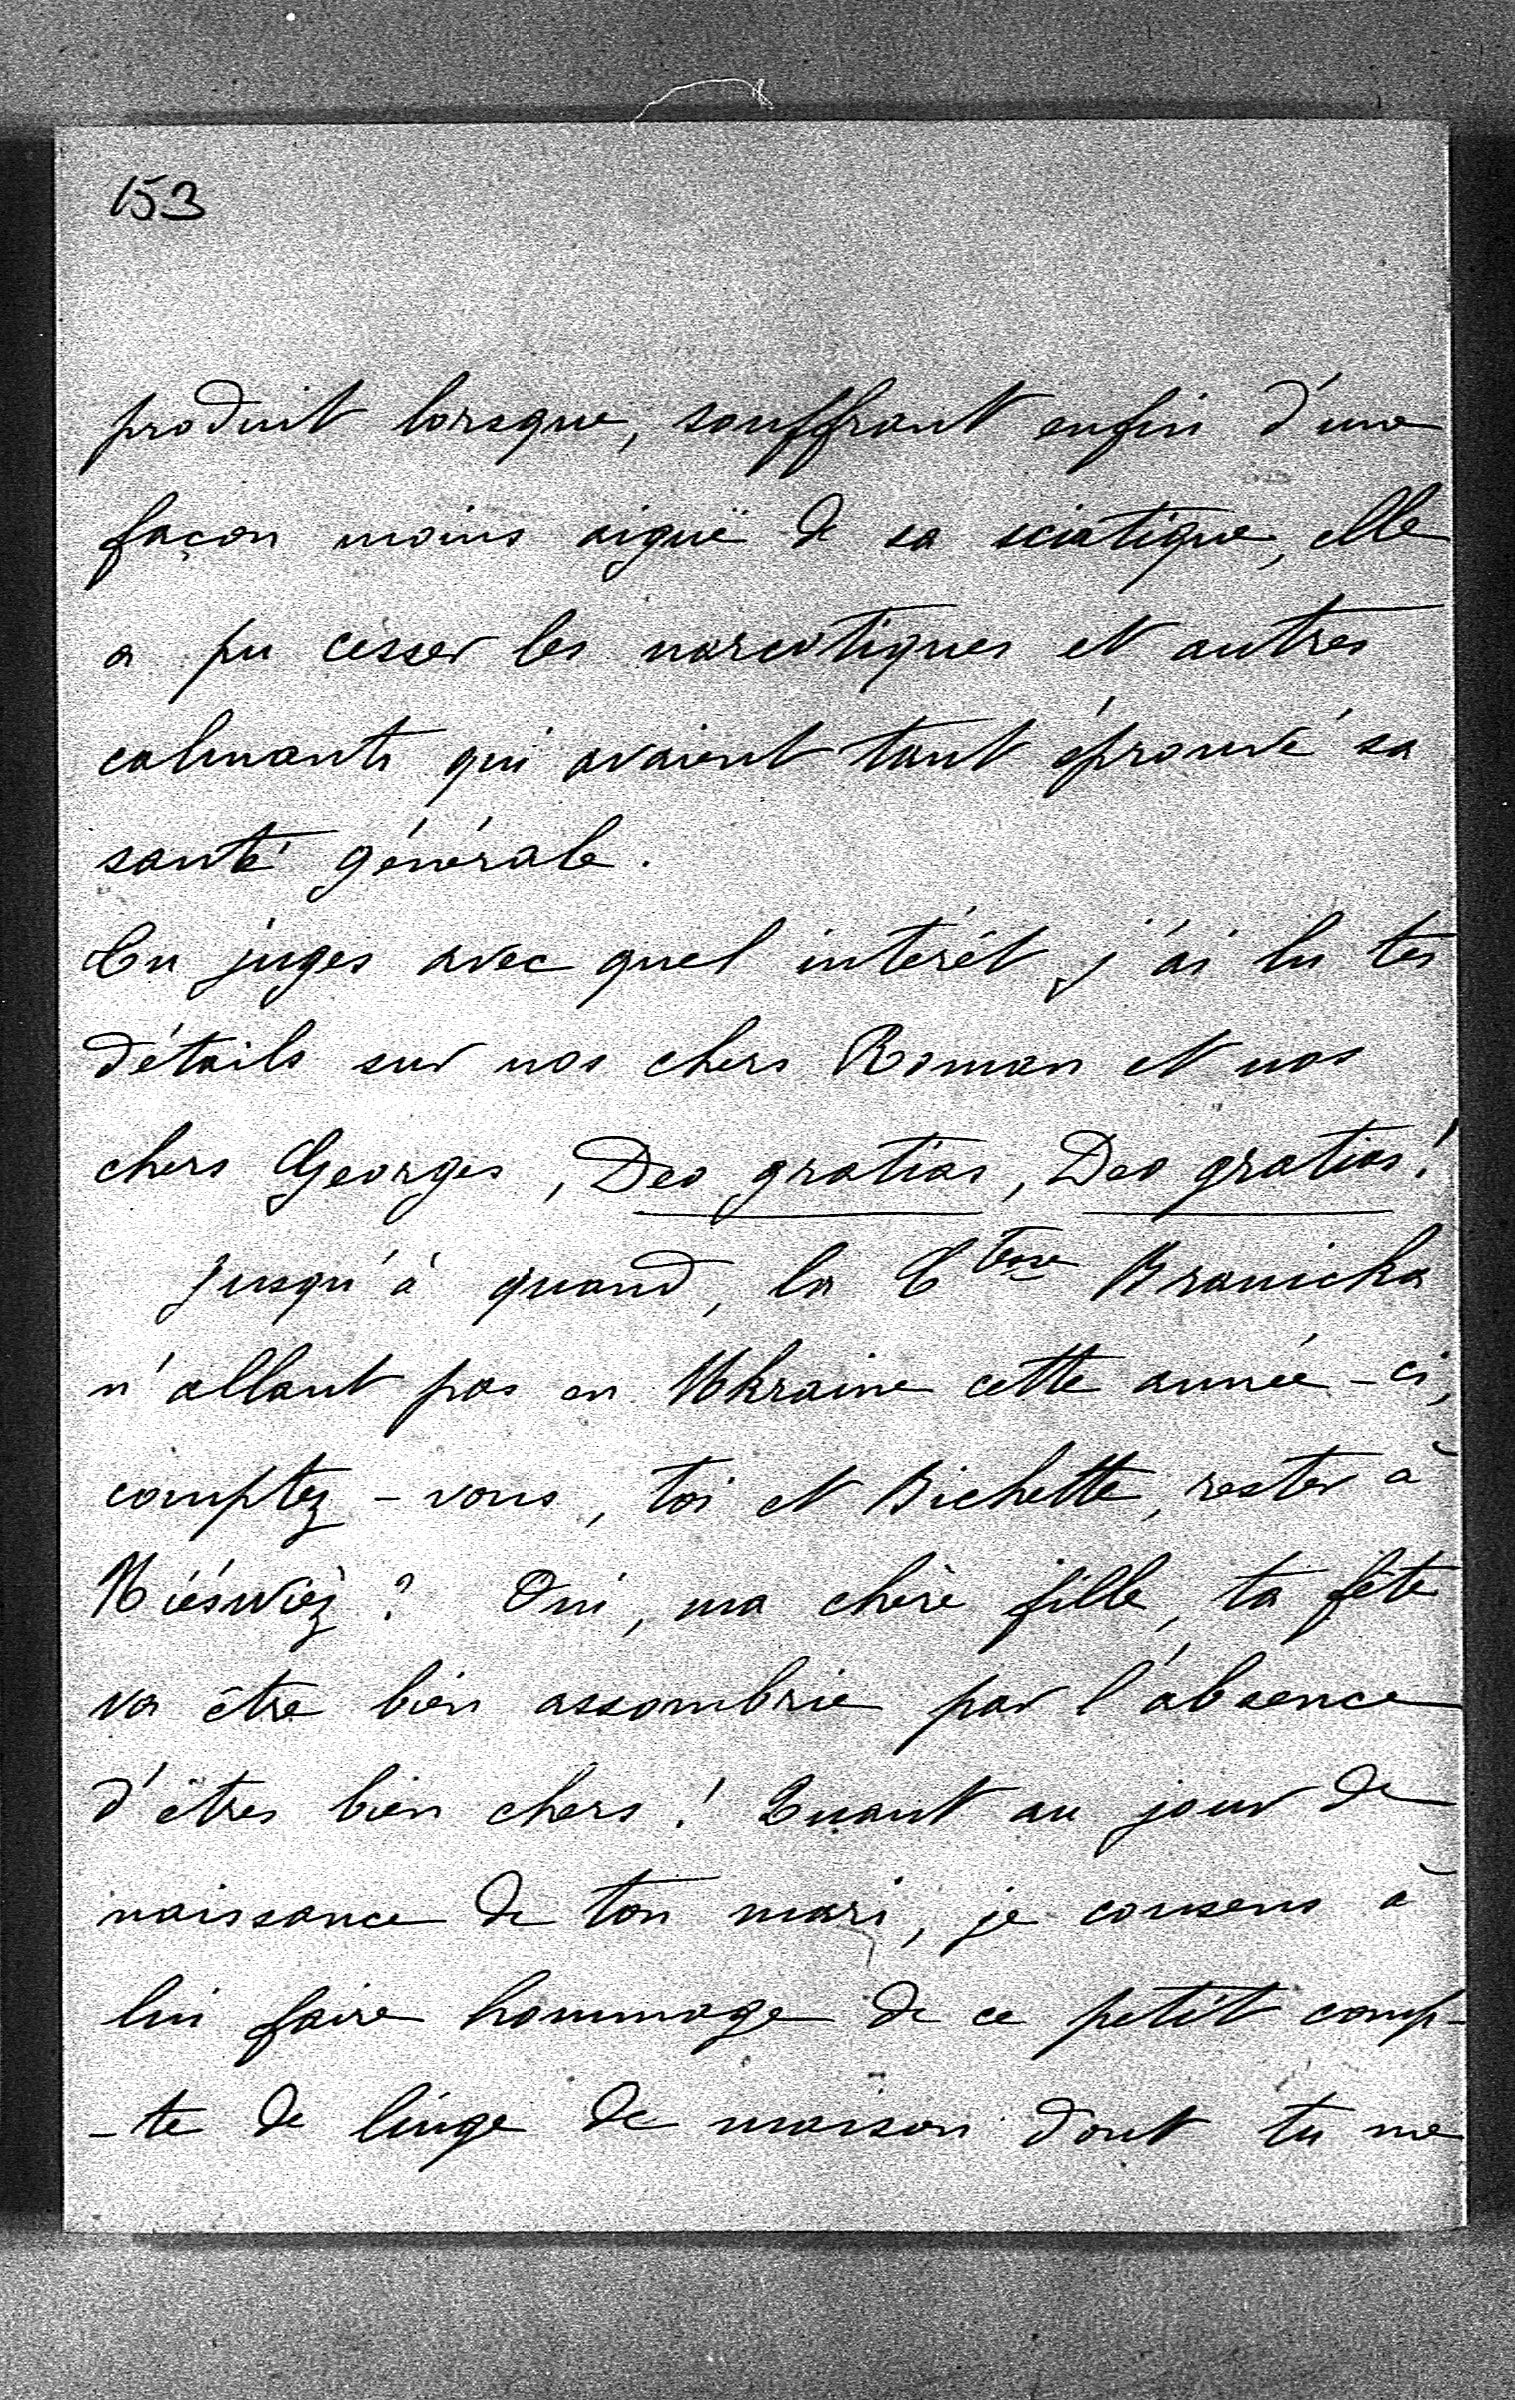 153
produit lorsque, souffrant enfin d'une
façon moins aiguë de sa sciatique, elle
a pu cesser les narcotiques et autres
calmants qui avaient tant éprouvé sa
santé générale.
Tu juges avec quel intérêt j'ai lu tes
détails sur nos chers Roman et nos
chers Georges, Deo gratias, Deo gratias!
Jusqu'à quand, la Ctesse Branicka
n'allant pas en Ukraine cette année-ci,
comptez-vous, toi et Bichette, rester à
Niéswiéz? Oui, ma chère fille, ta fête
va être bien assombrie par l'absence
d'êtres bien chers! Quant au jour de
naissance de ton mari, je consens à
lui faire hommage de ce petit comp-
-te de linge de maison dont tu me